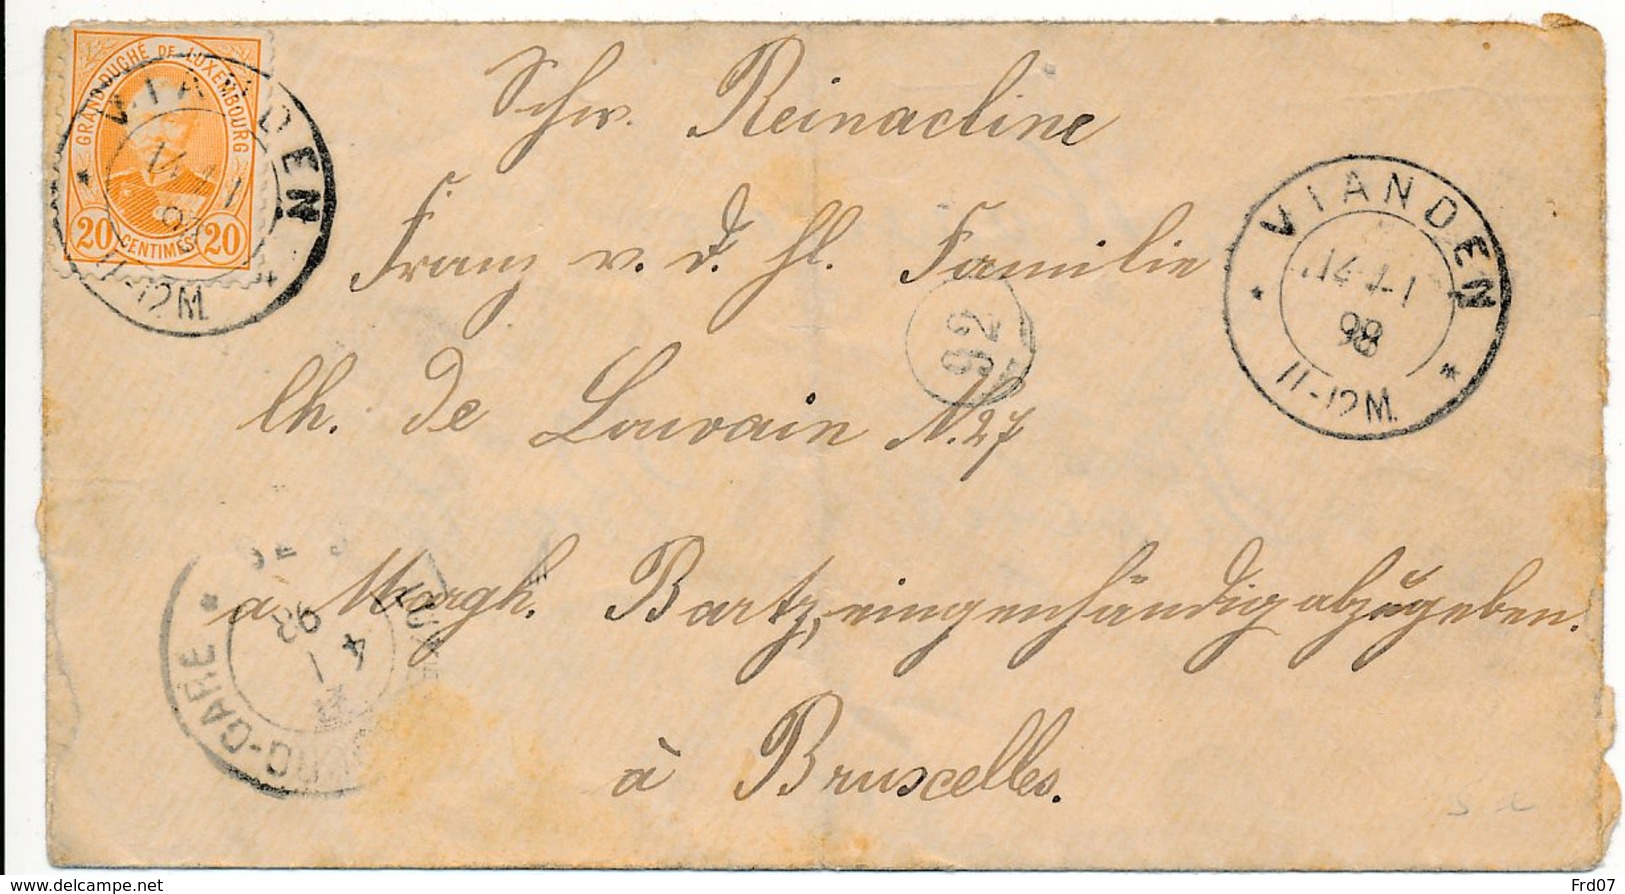 GRAND-DUCHÉ DE LUXEMBOURG
20 CENTIMES 20
VIANDEN
11-12M.
Schw. Reinacline
Franz v. d. hl. Familie
VIANDEN
14-1
98
11-12M.
92
lh. de Louvain N. 27
a Margh. Bartz, eingenhändig abzugeben.
GARE
4
1
à Bruxelles.
delcampe.net
Frd07